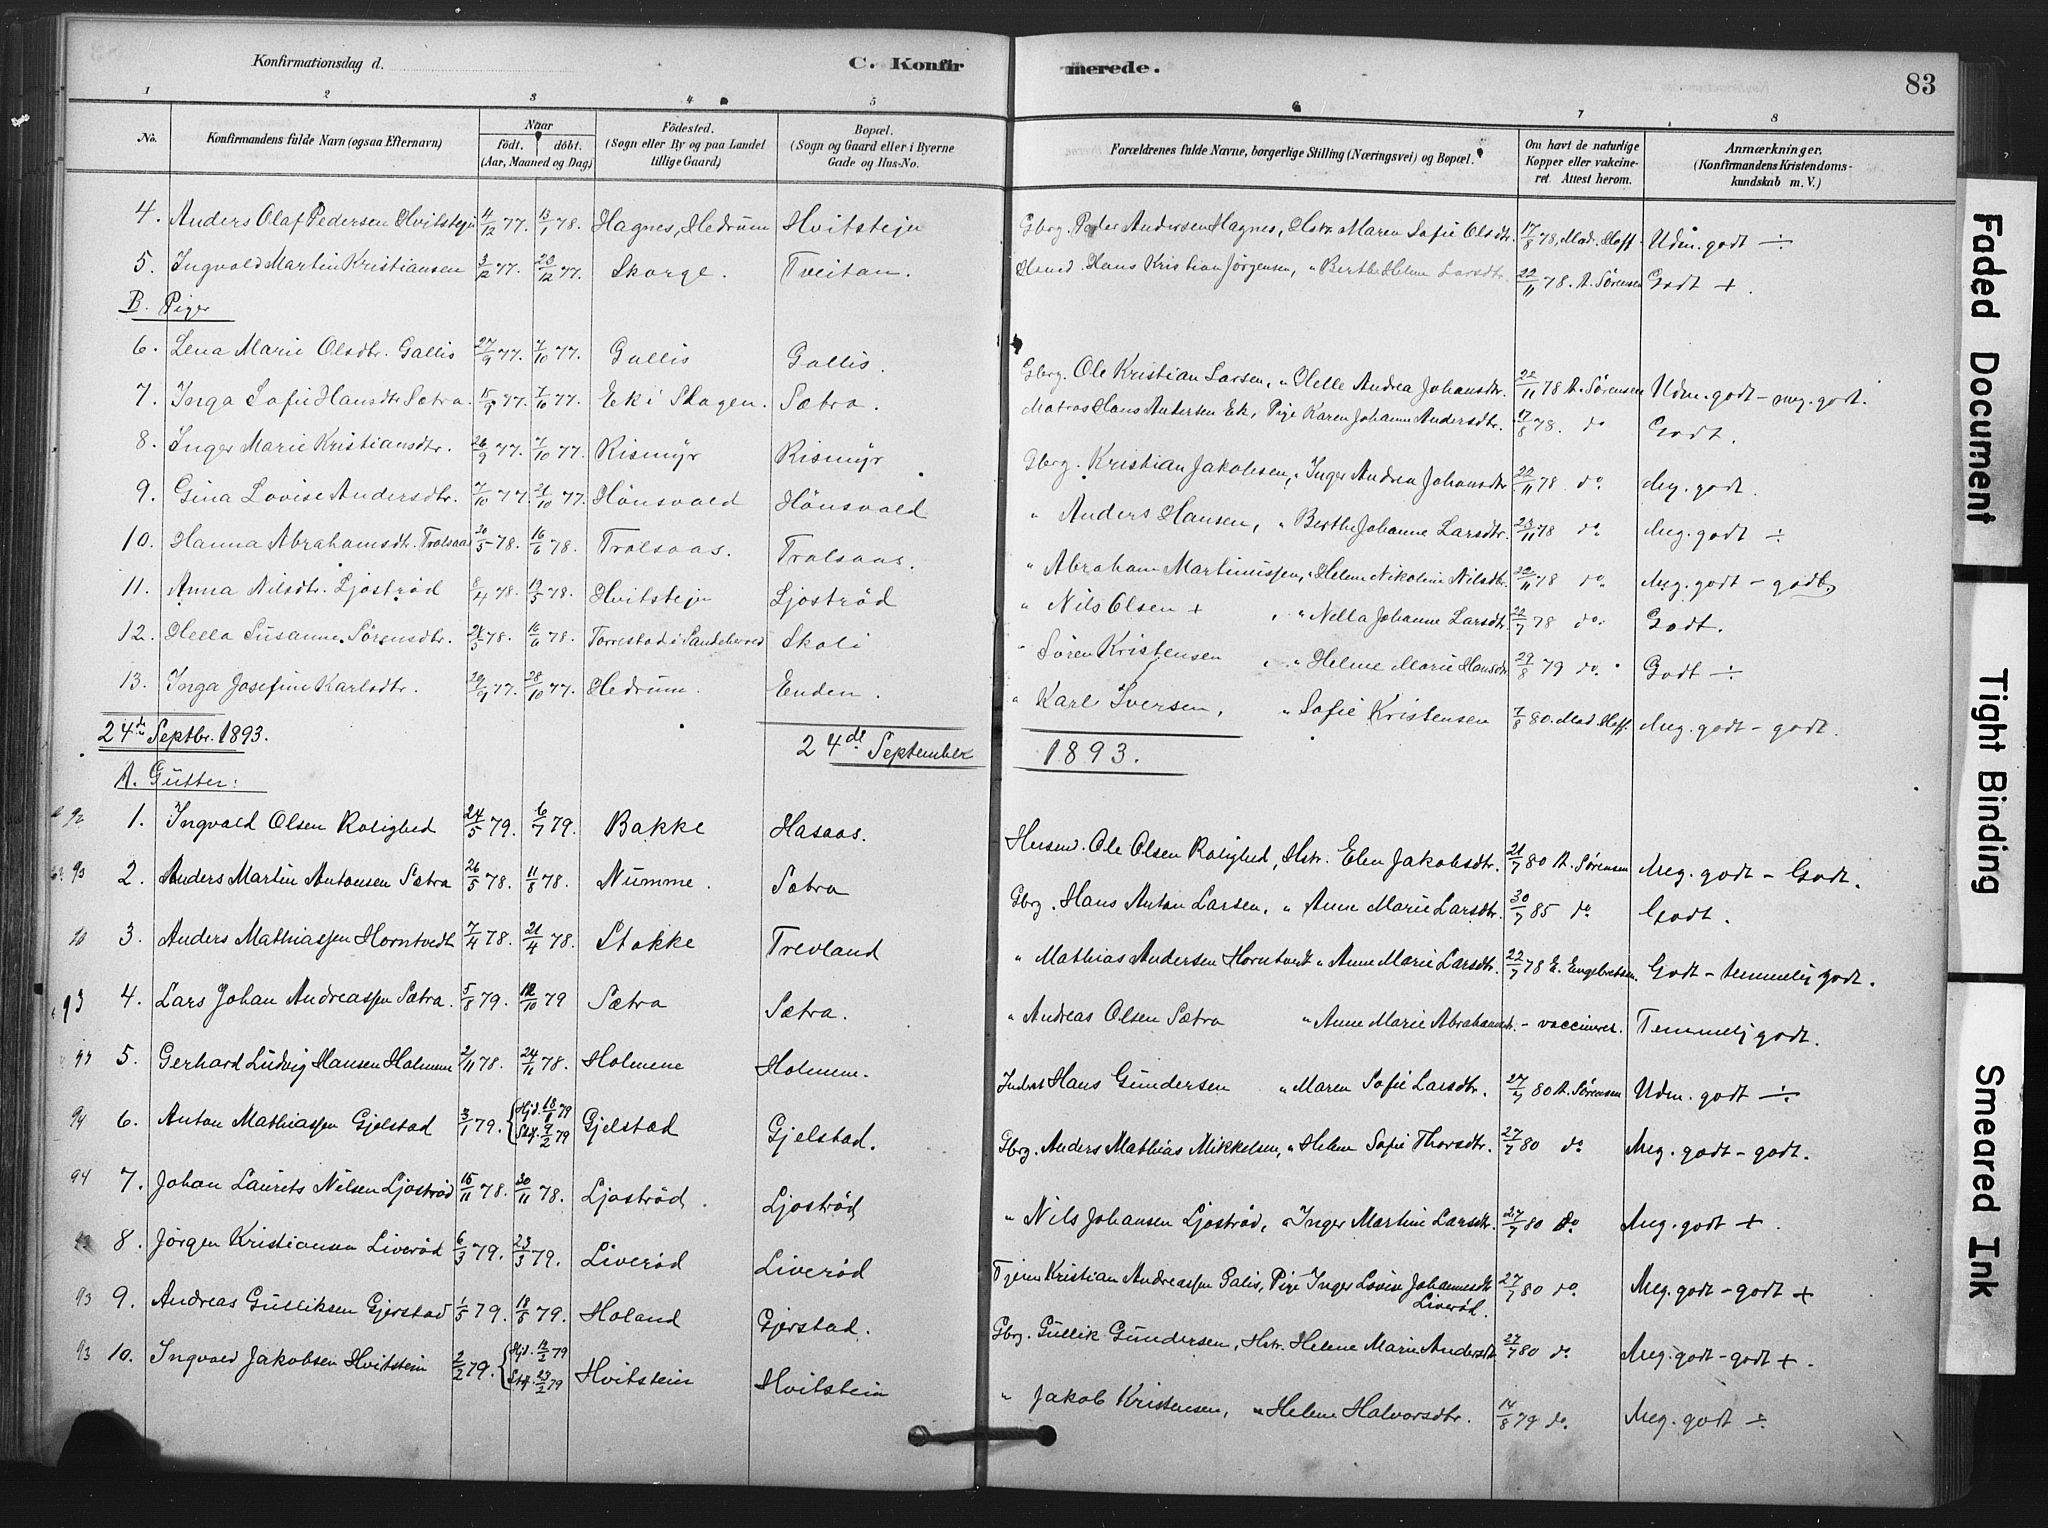 Konfirmationsdag d.
C. Konfirmerede.
83
1 2 3 4 5 6 7 8
No. Konfirmandens fulde Navn (ogsaa Efternavn) Naar födt. döbt. (Aar, Maaned og Dag) Födested. (Sogn eller By og paa Landet tillige Gaard) Bopæl. (Sogn og Gaard eller i Byerne Gade og Hus-No. Forældrenes fulde Navne, borgerlige Stilling (Næringsvei) og Bopæl. Om havt de naturlige Kopper eller vakcineret. Attest herom. Anmærkninger. (Konfirmandens Kristendomskundskab m. V.)
4. Anders Olaf Pedersen Hvitstejn 11/12 77. 13/1 78. Hagnes, Hedrum Hvitstejn Gbrg. Peder Andersen Hagnes, Hstr. Maren Sofie Olsdtr. 17/8 78. Mad. Hoff. Udm. godt ÷
5. Ingvald Martin Kristiansen 3/12 77. 23/12 77. Skorge. Tveitan. Hans Kristian Jörgensen, " Berthe Helene Larsdtr. 22/11 78. A. Sörensen Godt +.
B. Piger
6. Lena Marie Olsdtr. Gallis 27/9 77. 7/10 77. Gallis Gallis. Gbrg. Ole Kristian Larsen, " Helle Andrea Johansdtr. 22/11 78 A. Sörensen Udm. godt – meg. godt.
7. Inga Sofie Hansdtr Sætra 15/9 77. 7/10 77. Ek i Skogen. Sætra. Matros Hans Andersen Ek, Pige Karen Johanne Andersdtr. 17/8 78. do Godt.
8. Inger Marie Kristiansdtr. 26/9 77. 7/10 77. Rismyr Rismyr Gbrg. Kristian Jakobsen, " Inger Andrea Johansdtr 22/11 78 do Meg. godt.
9. Gina Lovise Andersdtr. 7/10 77. 21/10 77. Hönsvald Hönsvald " Anders Hansen, " Berthe Johanne Larsdtr. 23/11 78 do Meg. godt ÷
10. Hanna Abrahamsdtr. Trolsaas 20/5 78. 16/6 78. Trolsaas. Trolsaas. " Abraham Martinussen, " Helene Nikoline Nilsdtr. 22/11 78 do Meg. godt – godt,
11. Anna Nilsdtr. Ljoströd 8/4 78. 19/5 78. Hvitstejn Ljoströd " Nils Olsen + " Nella Johanne Larsdtr. 22/7 78 do. Godt.
12. Hella Susanne Sörensdtr. 21/5 78. 16/6 78. Torrestad i Sandeherred Skoli " Sören Kristensen " Helene Marie Hansdtr 29/8 79 do. Godt ÷
13. Inga Josefine Karlsdtr. 29/9 77. 28/10 77. Hedrum. Enden. " Karl Iversen, " Sofie Kristensen 7/8 80. Mad. Hoff. Meg. godt – godt.
24de Septbr. 1893. 24de September 1893.
A. Gutter:
92 1. Ingvald Olsen Rolighed 24/5 79. 6/7 79. Bakke Hasaas. Husmd. Ole Olsen Rolighed, Hstr. Elen Jakobsdtr. 21/7 80 A. Sörensen Meg. godt – Godt.
93 2. Anders Martin Antonsen Sætra 26/5 78. 11/8 78. Numme. Sætra Gbrg. Hans Anton Larsen, " Anne Marie Larsdtr. 30/7 85 do Godt.
3. Anders Mathiassen Horntvedt 7/4 78. 21/4 78. Stokke Trevland " Mathias Andersen Horntvedt " Anne Marie Larsdtr. 22/7 78 E. Engebretsen Godt – temmelig godt.
93 4. Lars Johan Andreassen Sætra. 5/8 79. 12/10 79 Sætra Sætra. " Andreas Olsen Sætra " Anne Marie Abrahamsdtr. – vaccineret. Temmelig godt.
93 5. Gerhard Ludvig Hansen Holmene 2/11 78. 24/11 78. Holmene Holmene. Inderst Hans Gundersen " Maren Sofie Larsdtr. 27/7 80 A. Sörensen Udm. godt ÷
94 6. Anton Mathiassen Gjelstad 3/1 79. Hjd. 18/1 79 Stf. 9/2 79 Gjelstad Gjelstad. Gbrg. Anders Mathias Mikkelsen, " Helene Sofie Thorsdtr. 27/7 80 do Meg. godt – godt.
94 7. Johan Laurits Nilsen Ljoströd 15/11 78. 30/11 78. Ljoströd. Ljoströd " Nils Johansen Ljoströd, " Inger Martine Larsdtr. 27/7 80 do Meg. godt +.
8. Jörgen Kristiansen Liveröd 6/3 79. 23/3 79. Liveröd Liveröd Tjener Kristian Andreassen Galis, Pige Inger Lovise Johannesdtr Liveröd. 27/7 80 do. Meg. godt – godt +
93 9. Andreas Gulliksen Gjerstad 1/5 79. 18/5 79. Holand Gjerstad. Gbrg. Gullik Gundersen, Hstr. Helene Marie Andersdtr 27/7 80 do Meg. godt – godt +.
93 10. Ingvald Jakobsen Hvitstein 2/2 79. Hjd. 12/2 79 Stf. 23/2 79 Hvitstein Hvitstein " Jakob Kristensen, " Helene Halvorsdtr. 14/8 79 do. Meg. godt ÷
Faded Document
Tight Binding
Smeared Ink